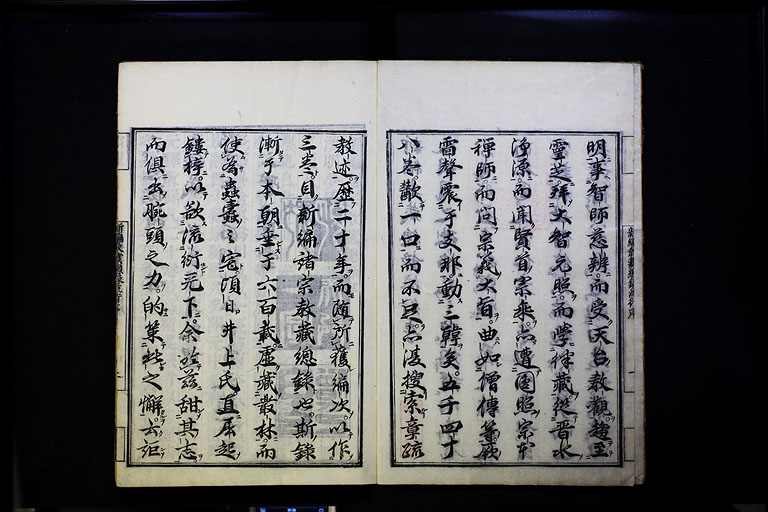 明事智師慈辨而受天台教觀趨至
靈芝拜大智元照而學律藏從晋水
淨源而開賢首宗乘亦遭圓照宗本
禪師而問宗義大旨曲如僧傳等厥
雷聲震于支那動三韓矣五千四十
八卷歠一口而不足亦渡搜索章疏
教迹歷二十年而随所獲編次以作
三卷目新編諸宗教藏總錄也斯錄
漸于本朝垂于六百載虛藏叢林而
使為蟲蠹之宅頃日井上氏直屏起
鏤梓以欲流衍天下余於茲甜其志
而俱出腕頭之力的集讐之懈云詎